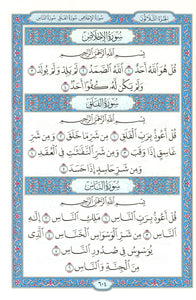 سورة الإخلاص سورة الفلق سورة الناس
الجزء الثلاثون
سُورَةُ الإِخْلَاصِ
بِسْمِ اللَّهِ الرَّحْمَنِ الرَّحِيمِ
قُلْ هُوَ اللَّهُ أَحَدٌ ١ اللَّهُ الصَّمَدُ ٢ لَمْ يَلِدْ وَلَمْ يُولَدْ ٣
وَلَمْ يَكُن لَّهُ كُفُوًا أَحَدٌ ٤
سُورَةُ الفَلَقِ
بِسْمِ اللَّهِ الرَّحْمَنِ الرَّحِيمِ
قُلْ أَعُوذُ بِرَبِّ الْفَلَقِ ١ مِن شَرِّ مَا خَلَقَ ٢ وَمِن شَرِّ
غَاسِقٍ إِذَا وَقَبَ ٣ وَمِن شَرِّ النَّفَّاثَاتِ فِي الْعُقَدِ ٤
وَمِن شَرِّ حَاسِدٍ إِذَا حَسَدَ ٥
سُورَةُ النَّاسِ
بِسْمِ اللَّهِ الرَّحْمَنِ الرَّحِيمِ
قُلْ أَعُوذُ بِرَبِّ النَّاسِ ١ مَلِكِ النَّاسِ ٢ إِلَهِ
النَّاسِ ٣ مِن شَرِّ الْوَسْوَاسِ الْخَنَّاسِ ٤ الَّذِي
يُوَسْوِسُ فِي صُدُورِ النَّاسِ ٥
مِنَ الْجِنَّةِ وَالنَّاسِ ٦
٦٠٤